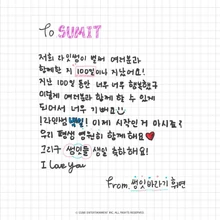 To SUMIT
저희 라잇썸이 벌써 여러분과
함께한 지 100일이나 지났어요!
지난 100일 동안 너무 너무 행복했구
이렇게 여러분과 함께 할 수 있게
되어서 너무 기뻐요
! 라잇썸 생일! 이제 시작인 거 아시죠?
우리 평생 영원히 함께 해요♥
그리구 썸잇들 생일 축하해요!
I love you
From. 썸잇바라기 휘연